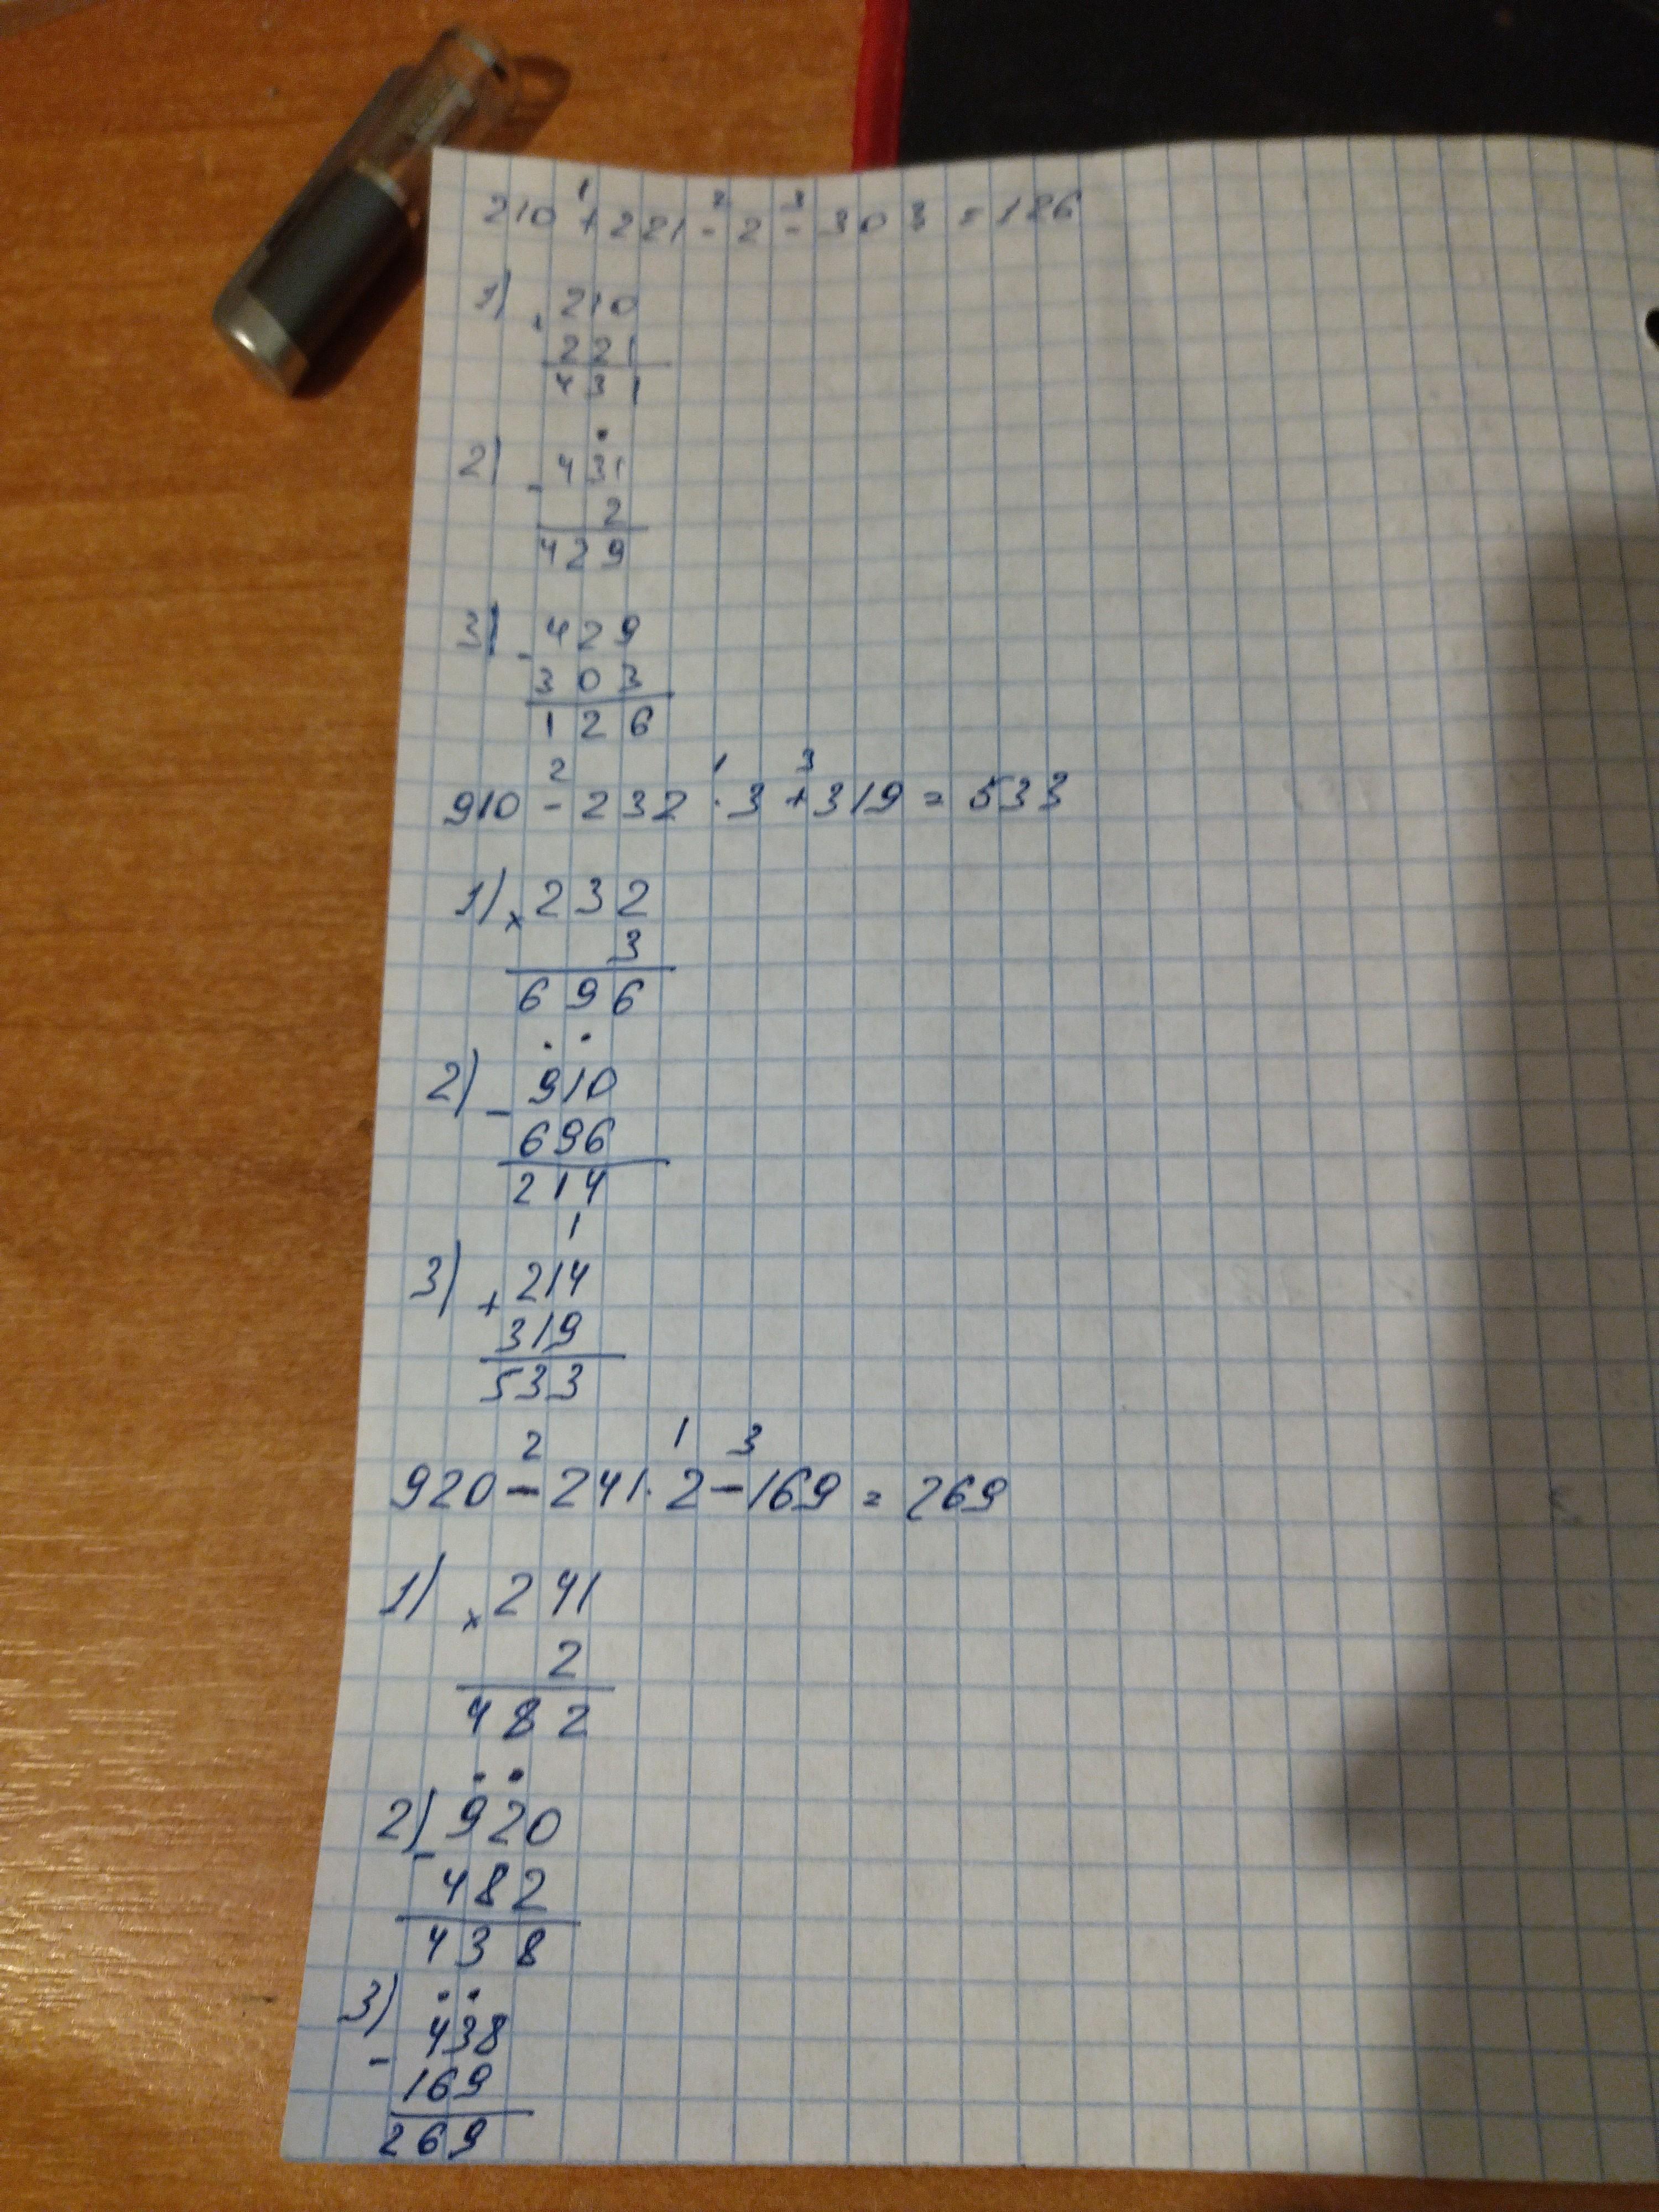 1 2 3
210 + 221 - 2 - 303 = 126
1) + 210
221
431
.
2) - 431
2
429
3) - 429
303
126
2 1 3
910 - 232 · 3 + 319 = 533
1) × 232
3
696
. .
2) - 910
696
214
1
3) + 214
319
533
2 1 3
920 - 241 · 2 - 169 = 269
1) × 241
2
482
. .
2) - 920
482
438
. .
3) - 438
169
269